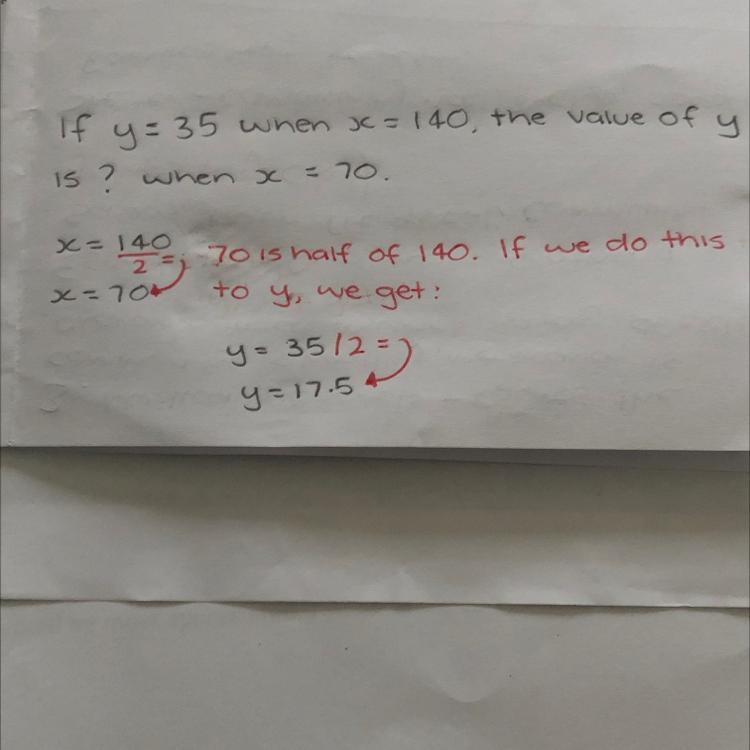 If y = 35 when x = 140, the value of y
is ? when x = 70.
x = 140/2 = 70 is half of 140. If we do this
x = 70 to y, we get:
y = 35/2 =
y = 17.5